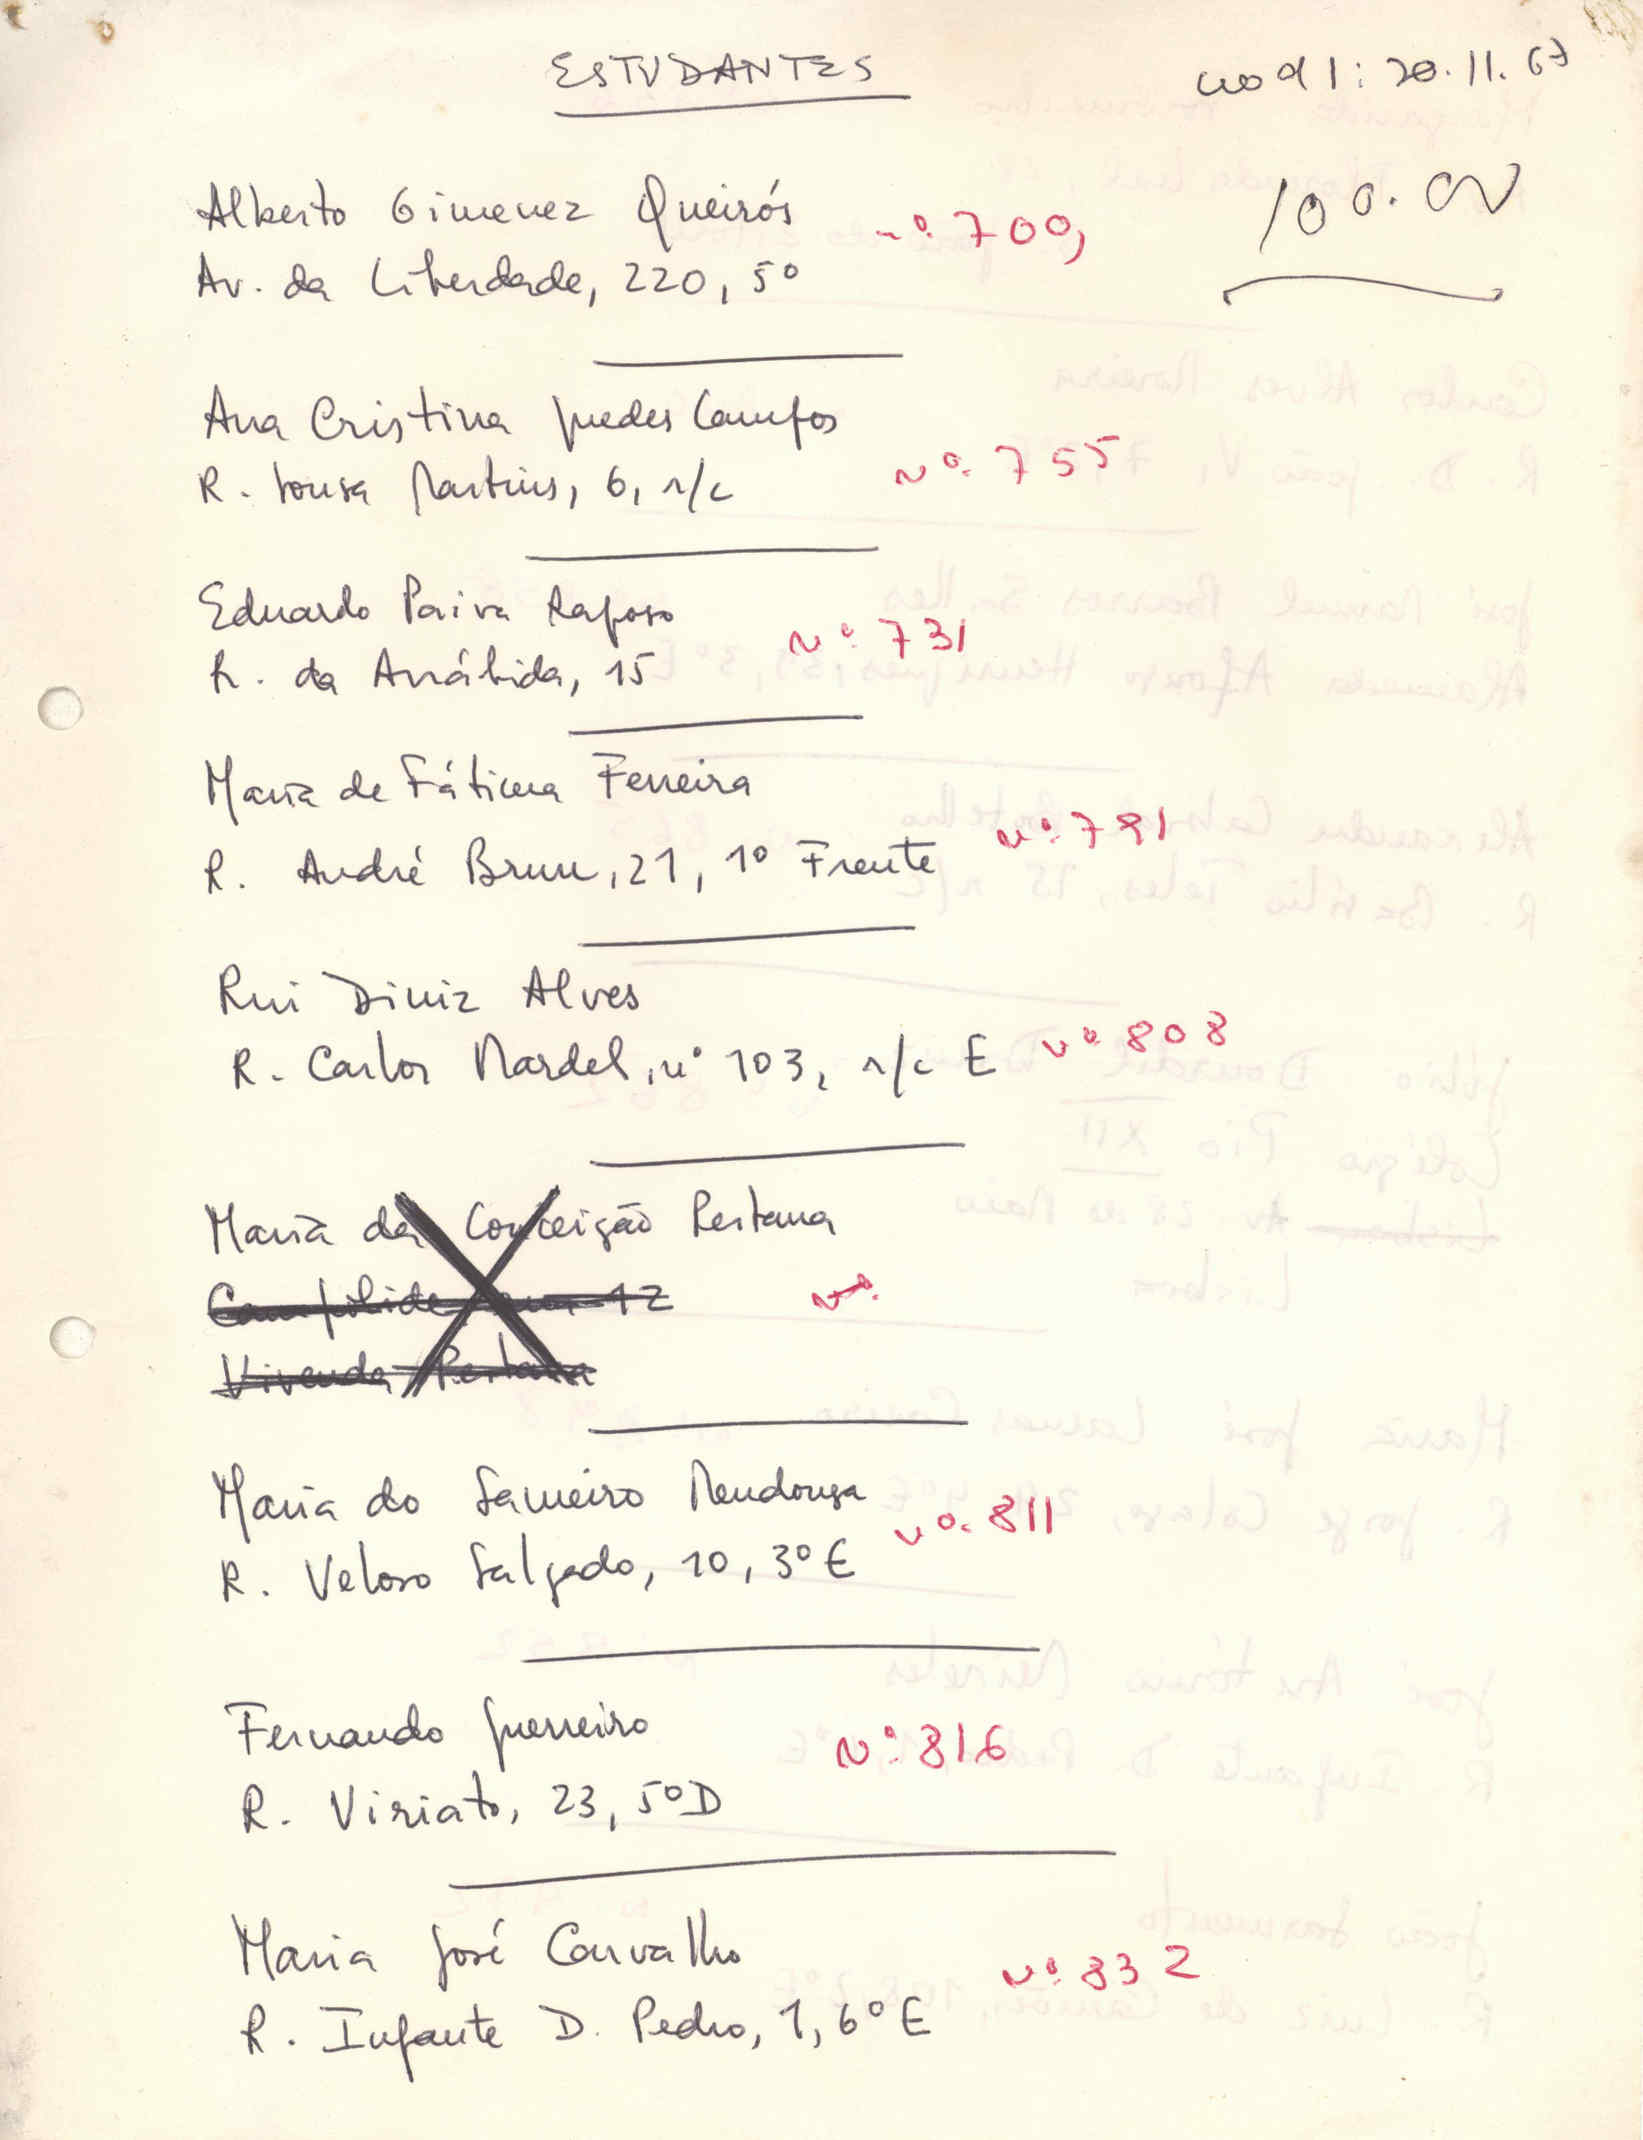 ESTUDANTES
20.11.67
100.00
Alberto Gimenez Queirós
nº. 700,
Av. da Liberdade, 220, 5º
Ana Cristina Guedes Campos
R. Sousa Martins, 6, r/c
nº. 755
Eduardo Paiva Raposo
nº. 731
R. da Arrábida, 15
Maria de Fátima Ferreira
nº. 791
R. André Brun, 21, 1º Frente
Rui Diniz Alves
R. Carlos Mardel, nº 103, r/c E
nº 808
Maria da Conceição Pestana
Campolide 12
nº.
Vivenda Pestana
Maria do Sameiro Mendonça
nº. 811
R. Veloso Salgado, 10, 3º E
Fernando Guerreiro
Nº. 816
R. Viriato, 23, 5º D
Maria José Carvalho
nº. 832
R. Infante D. Pedro, 1, 6º E